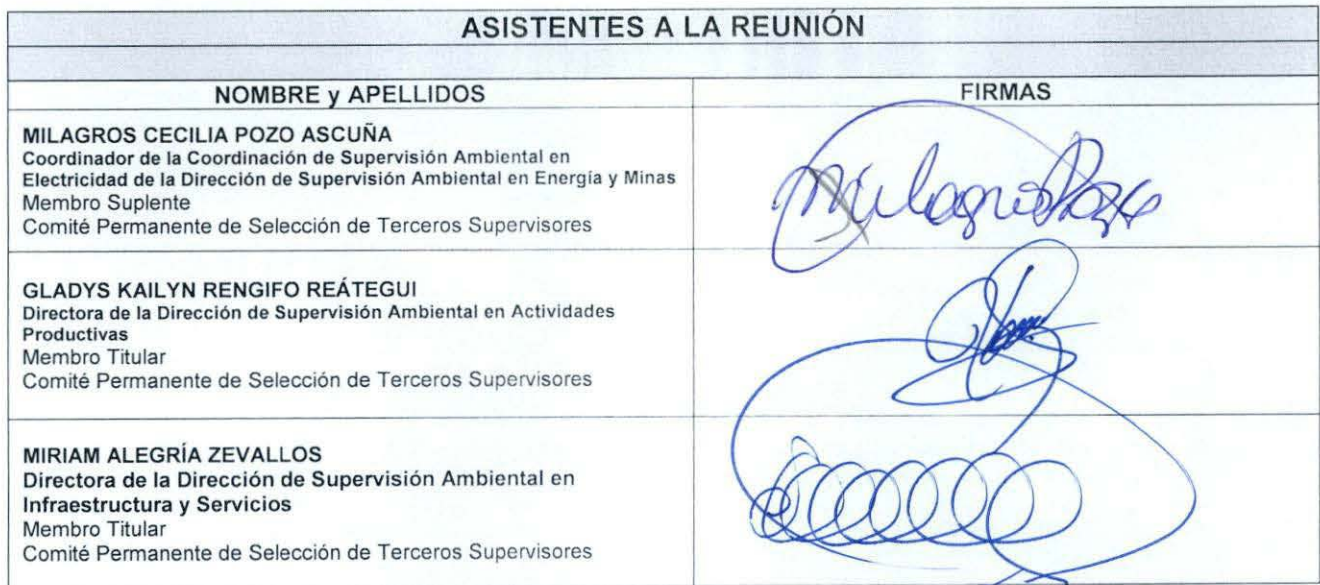 ASISTENTES A LA REUNIÓN
NOMBRE y APELLIDOS
FIRMAS
MILAGROS CECILIA POZO ASCUÑA
Coordinador de la Coordinación de Supervisión Ambiental en
Electricidad de la Dirección de Supervisión Ambiental en Energía y Minas
Membro Suplente
Comité Permanente de Selección de Terceros Supervisores
GLADYS KAILYN RENGIFO REÁTEGUI
Directora de la Dirección de Supervisión Ambiental en Actividades
Productivas
Membro Titular
Comité Permanente de Selección de Terceros Supervisores
MIRIAM ALEGRÍA ZEVALLOS
Directora de la Dirección de Supervisión Ambiental en
Infraestructura y Servicios
Membro Titular
Comité Permanente de Selección de Terceros Supervisores